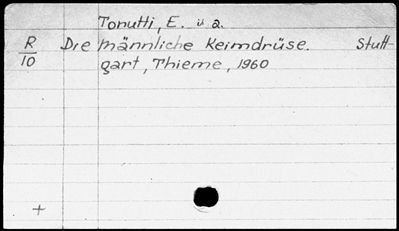 Tonutti, E. u a.
R
10
Die männliche Keimdrüse. Stutt-
gart, Thieme, 1960
+